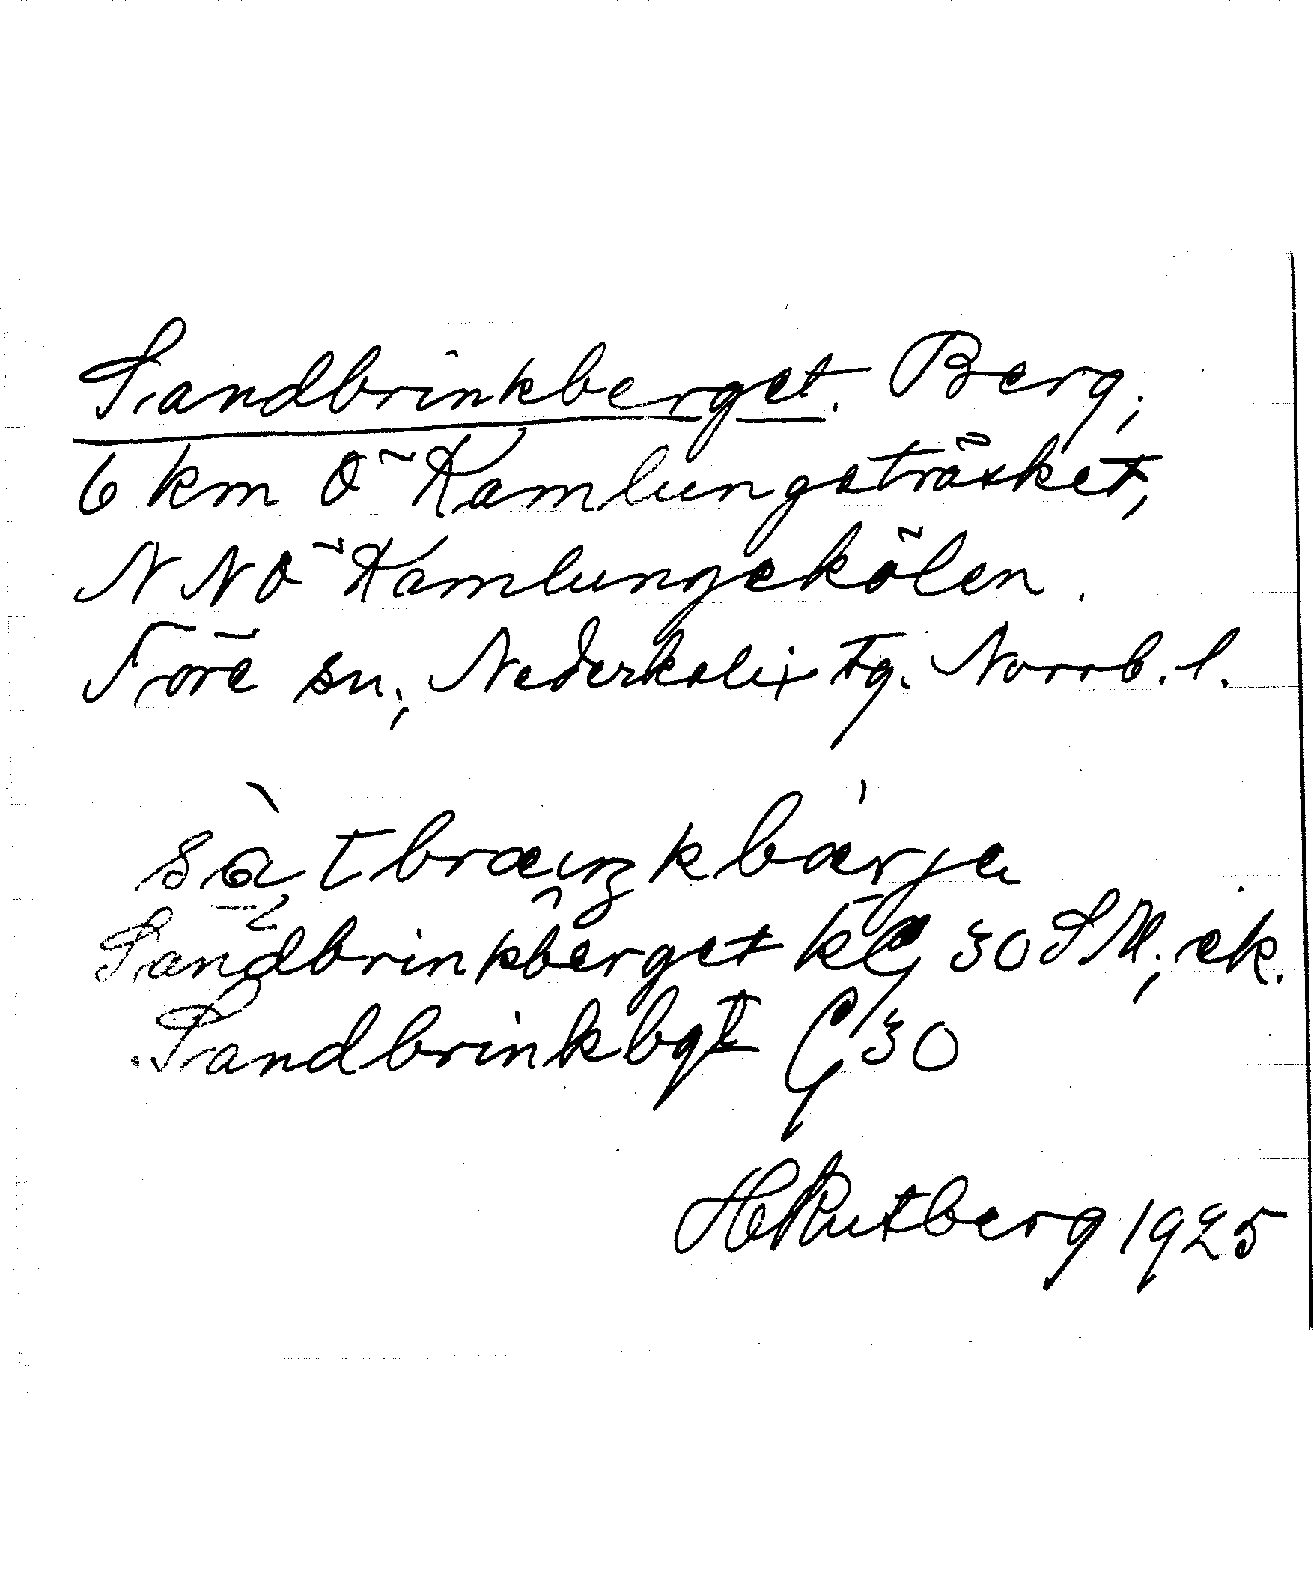 Sandbrinkberget. Berg;
6 km Ö Kamlungsträsket,
NNÖ Kamlungekölen.
Töre sn, Nederkalix tg. Norrb. l.
Sandbrinkberget 30 SM; ek.
Sandbrinkbgt 30
H Rutberg 1925